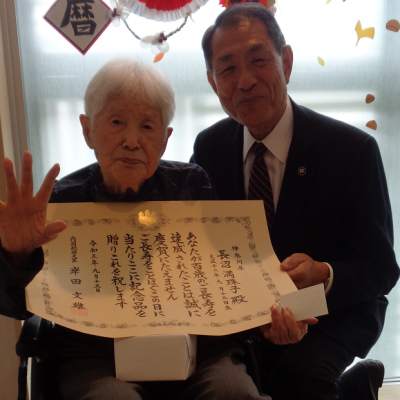 暦
神奈川県
長沼満珠子殿
あなたが百歳のご長寿を
達成されたことは誠に
慶賀にたえません
ご長寿をことほぐこの日に
当たりここに記念品を
贈りこれを祝します
令和三年九月十五日
内閣総理大臣 岸田文雄